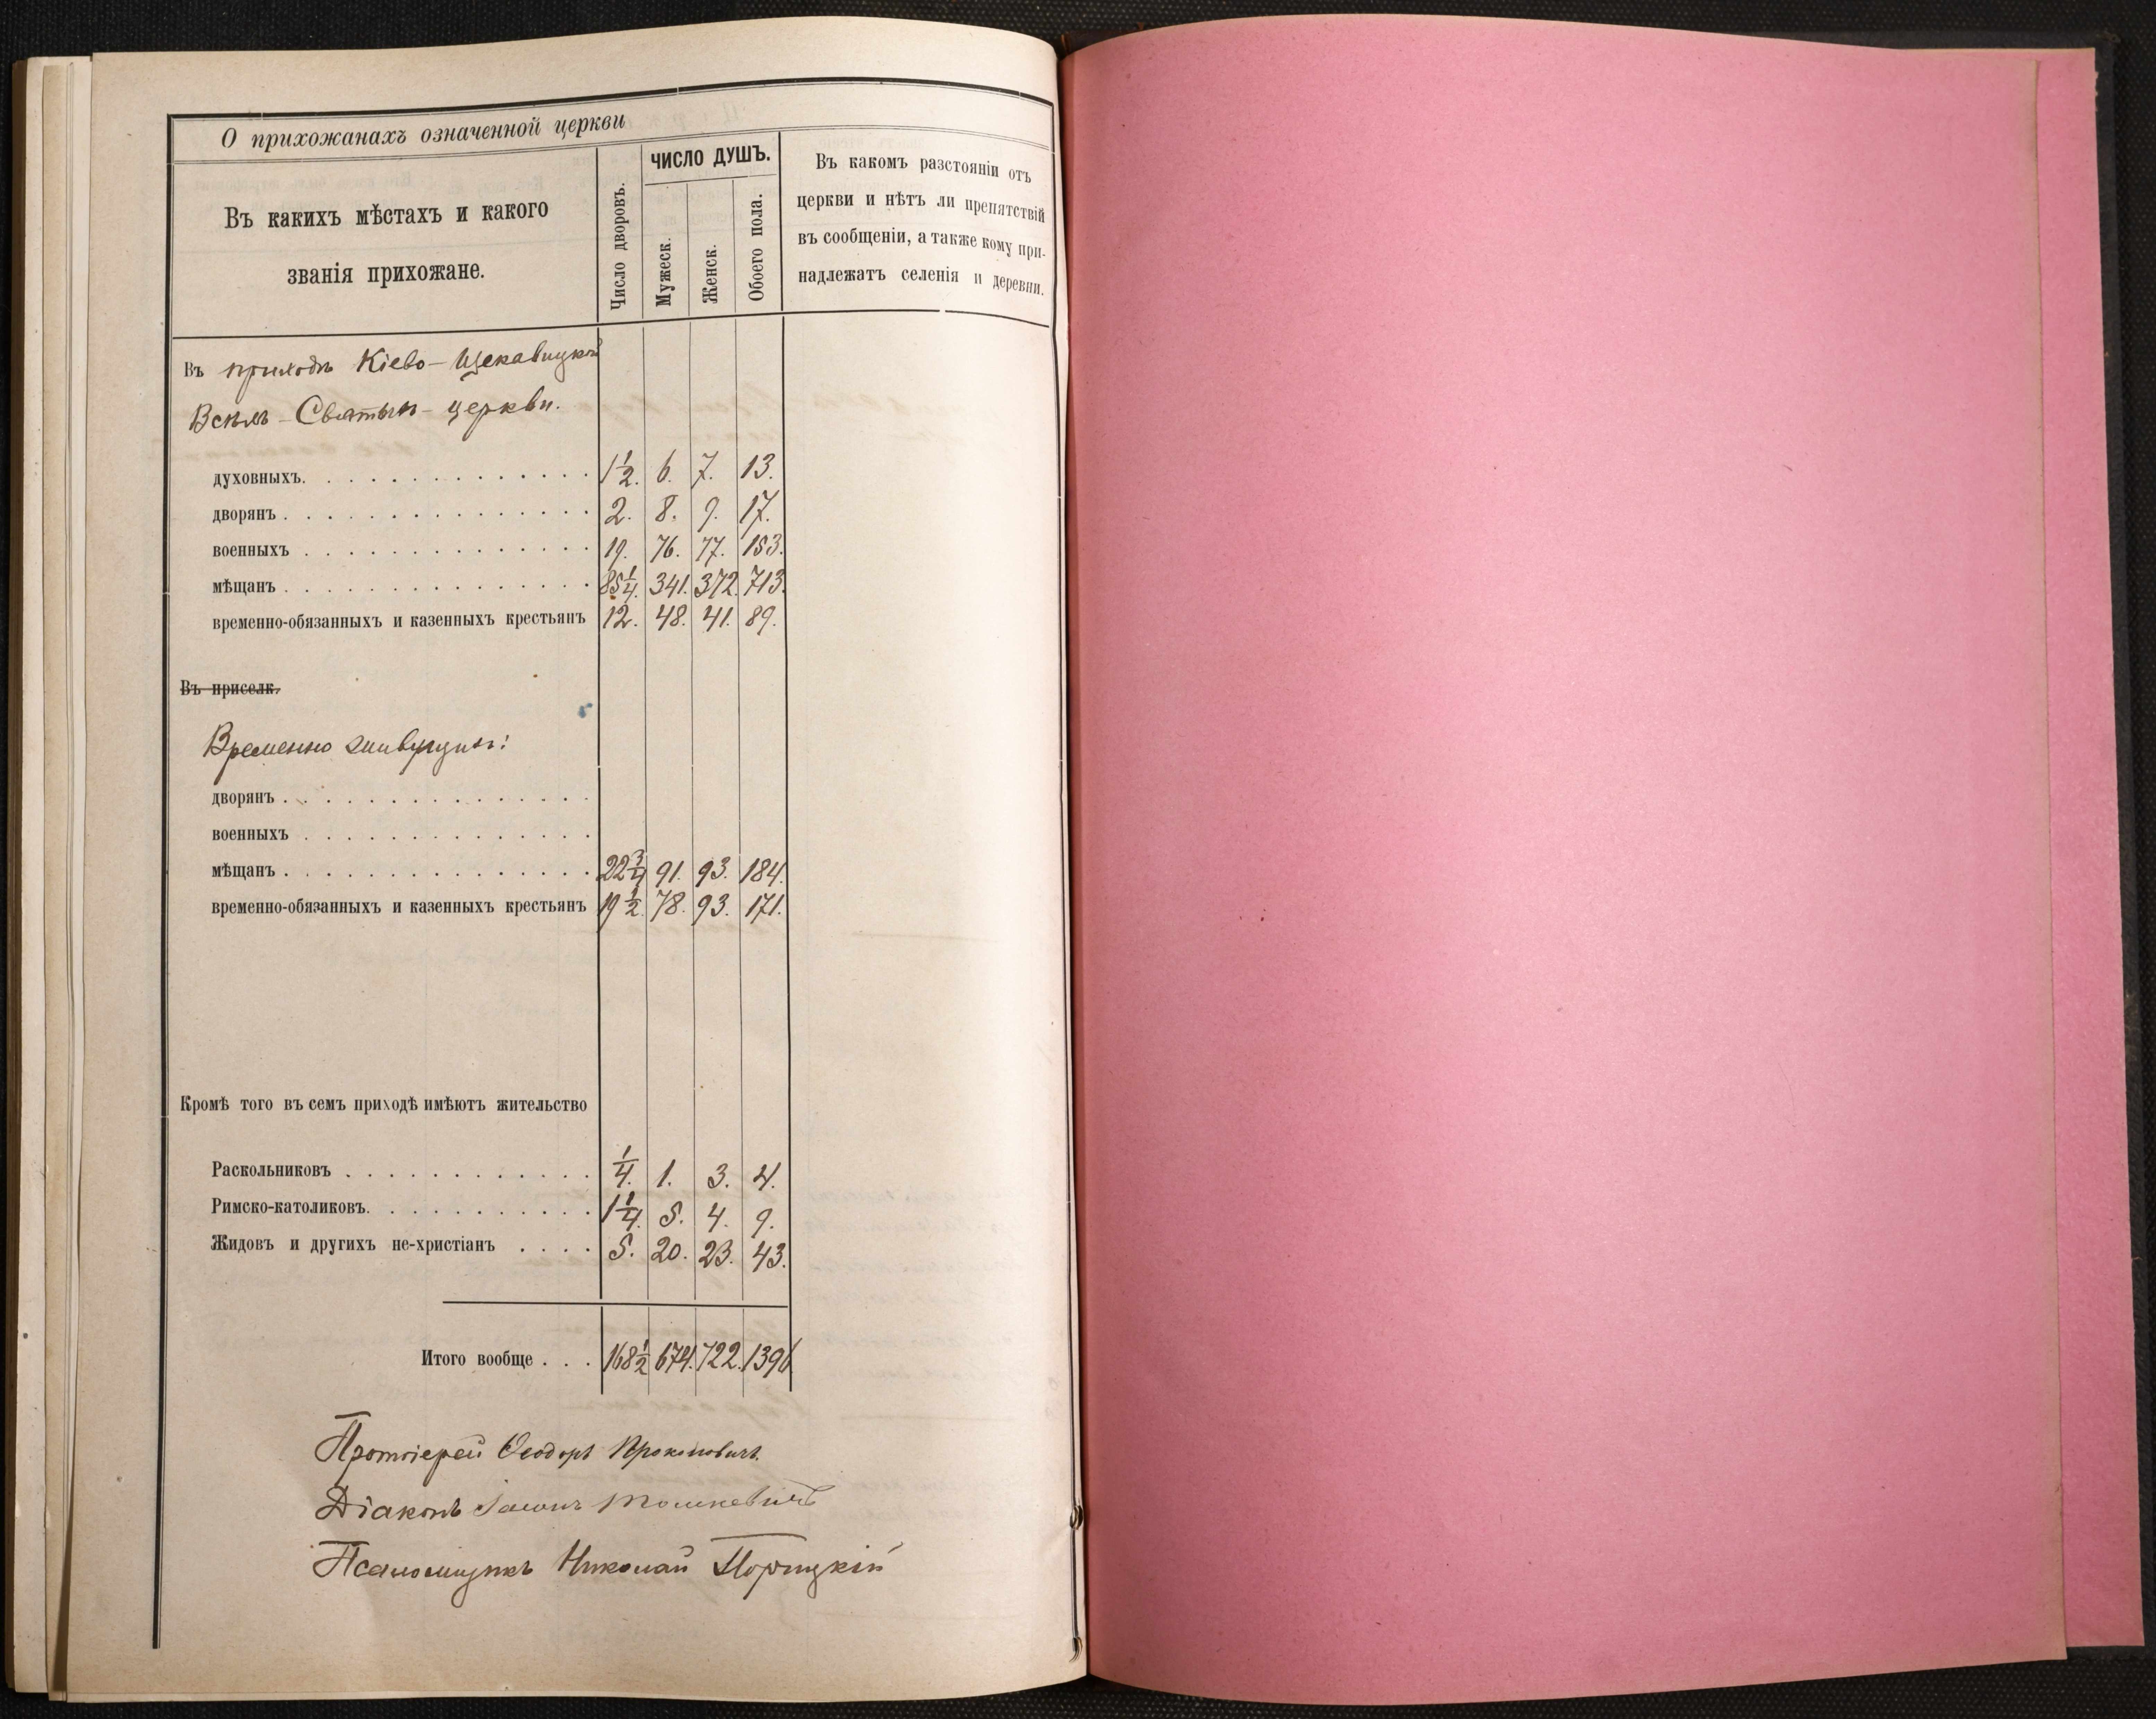 О прихожанахъ означенной церкви
Въ какихъ мѣстахъ и какого
званія прихожане.
Число дворовъ.
ЧИСЛО ДУШЪ.
Мужеск.
Женск.
Обоего пола.
Въ какомъ разстояніи отъ
церкви и нѣтъ ли препятствій
въ сообщеніи, а также кому при-
надлежатъ селенія и деревни.
Въ приходѣ Кіево-Щекавицкой
Всѣхъ-Святыхъ-церкви.
духовныхъ. 1 1/2. 6. 7. 13.
дворянъ 2. 8. 9. 17.
военныхъ 19. 76. 77. 153.
мѣщанъ 85 1/4. 341. 372. 713.
временно-обязанныхъ и казенныхъ крестьянъ 12. 48. 41. 89.
Въ приселк.
Временно живущихъ:
дворянъ
военныхъ
мѣщанъ 22 3/4 91. 93. 184.
временно-обязанныхъ и казенныхъ крестьянъ 19 1/2. 78. 93. 171.
Кромѣ того въ семъ приходѣ имѣютъ жительство
Раскольниковъ 1/4. 1. 3. 4.
Римско-католиковъ. 1 1/4. 5. 4. 9.
Жидовъ и другихъ не-христіанъ 5. 20. 23. 43.
Итого вообще 168 1/2 674. 722. 1396
Протоіерей Ѳеодоръ Прокоповичъ.
Діаконъ
Псаломщикъ Николай